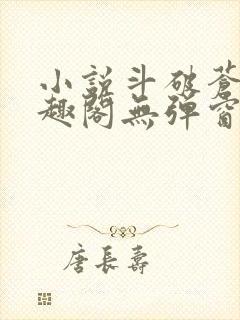 小說斗破蒼
趣閣無彈窗
唐長壽